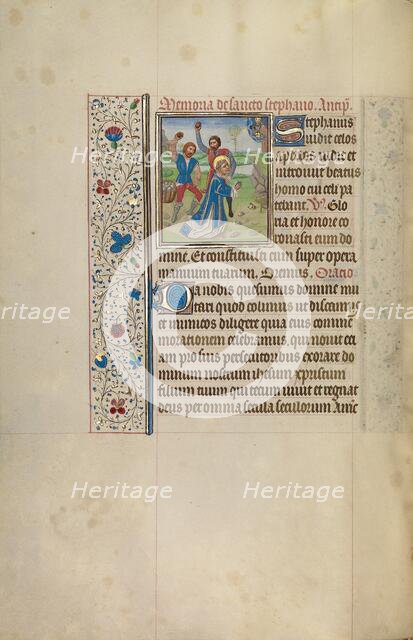 Memoria de sancto stephano. Antiph.
Stephanus
vidit celos
apertos vidit et
introivit beatus
homo cui celi pa
tebant. V. Glo
ria et honore co
ronasti eum do
mine. Et constituisti eum super opera
manuum tuarum. Oremus. Oracio
Da nobis quesumus domine imi
tari quod colimus ut discamus
et inimicos diligere quia eius comme
morationem celebramus qui novit eci
am pro suis persecutoribus exorare do
minum nostrum ihesum xpristum
filium tuum qui tecum vivit et regnat
deus per omnia secula seculorum Amen